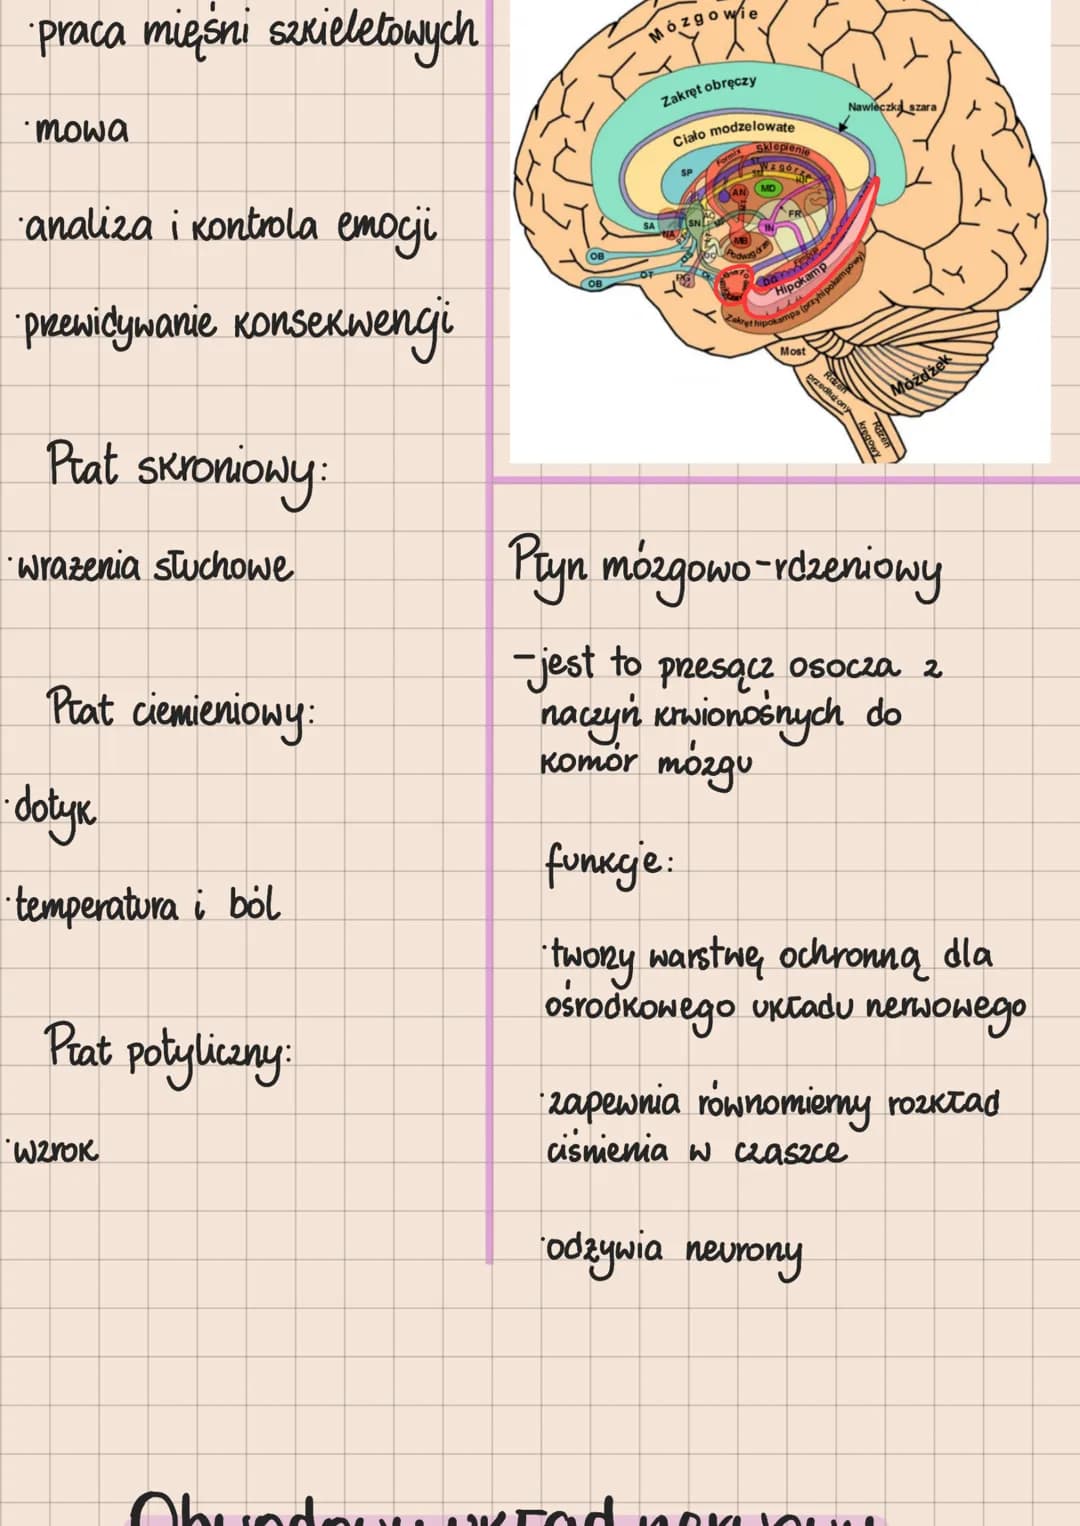 ·praca mięśni szkieletowych
·mowa
·analiza i kontrola emocji
·przewidywanie konsekwencji
Płat skroniowy:
·wrażenia słuchowe
Płat ciemieniowy:
·dotyk
·temperatura i ból
Płat potyliczny:
·wzrok
Mózgowie
Zakręt obręczy
Nawleczka szara
Ciało modzelowate
Fornix
Sklepienie
ST
Wzgórze
SP
AN
MD
FR
IN
SA
NA
SN
MB
Podwzgórze
OB
OT
OB
Hipokamp
Zakręt hipokampa (przyhipokampowy)
Most
Rdzeń
przedłużony
Rdzeń
kręgowy
Móżdżek
Płyn mózgowo-rdzeniowy
-jest to przesącz osocza z
naczyń krwionośnych do
komór mózgu
funkcje:
·tworzy warstwę ochronną dla
ośrodkowego układu nerwowego
·zapewnia równomierny rozkład
ciśnienia w czaszce
·odżywia neurony
Obwodowy układ nerwowy